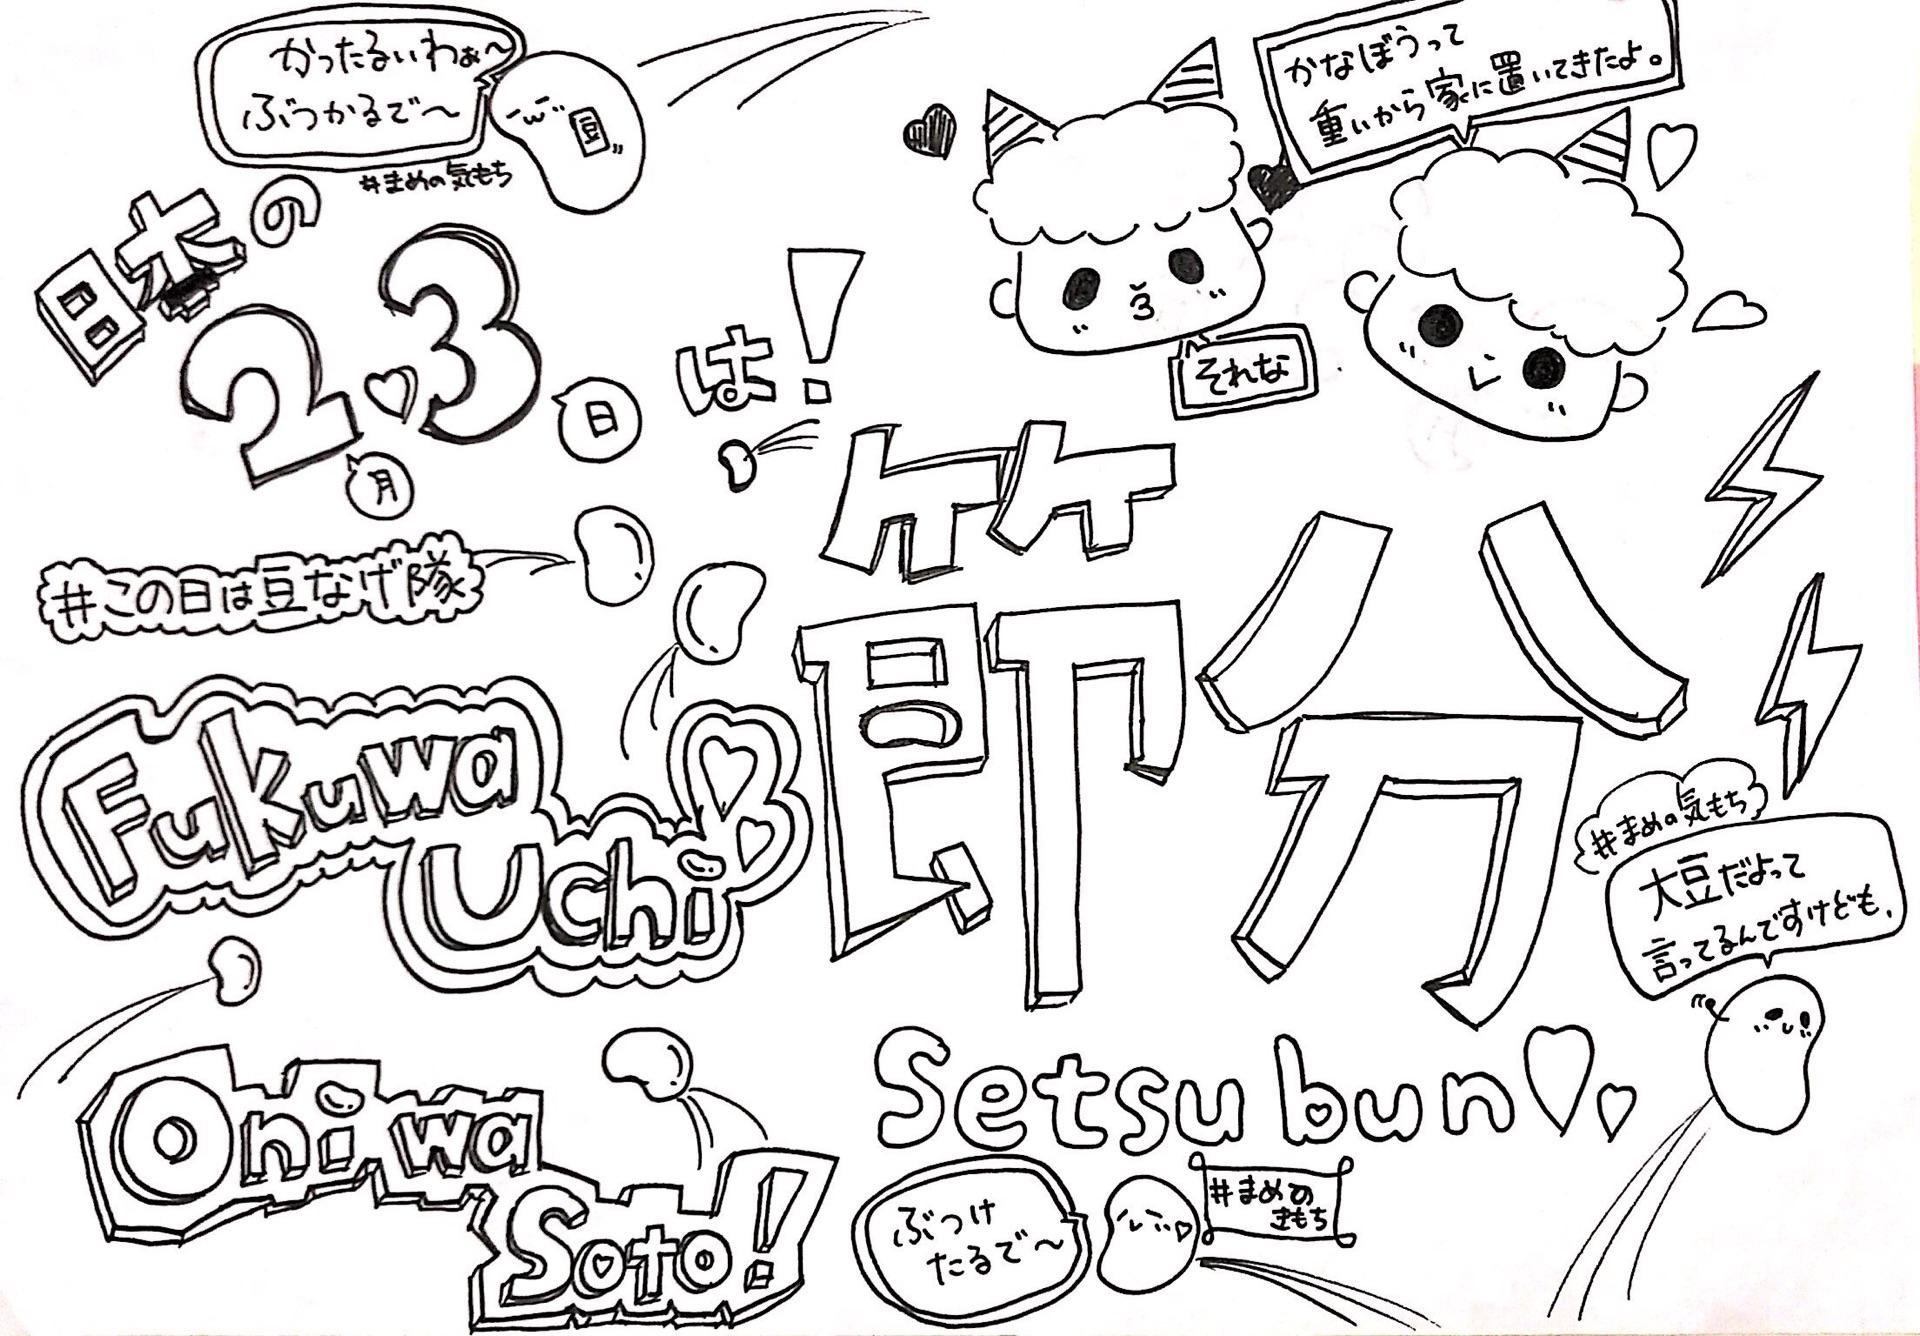 かったるいわぁ〜
ぶつかるで〜
豆
#まめの気もち
かなぼうって
重いから家に置いてきたよ。
それな
日本の
2月3日
は!
#この日は豆なげ隊
節分
Fukuwa
Uchi
#まめの気もち
大豆だよって
言ってるんですけども、
Oniwa
Soto!
Setsubun
ぶつけ
たるで〜
#まめの
きもち